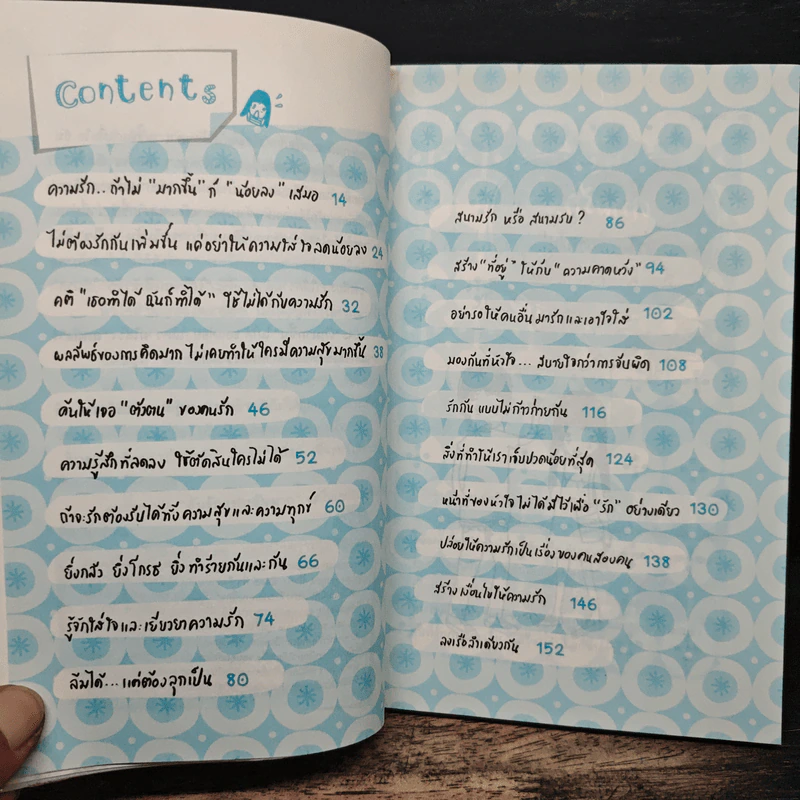 Contents
ความรัก.. ถ้าไม่ "มากขึ้น" ก็ "น้อยลง" เสมอ 14
ไม่ต้องรักกันเพิ่มขึ้น แค่อย่าให้ความใส่ใจลดน้อยลง 24
คติ "เธอทำได้ ฉันก็ทำได้" ใช้ไม่ได้กับความรัก 32
ผลลัพธ์ของการคิดมาก ไม่เคยทำให้ใครมีความสุขมากขึ้น 38
ค้นให้เจอ "ตัวตน" ของคนรัก 46
ความรู้สึกที่ลดลง ใช้ตัดสินใครไม่ได้ 52
ถ้าจะรักต้องรับได้ทั้งความสุขและความทุกข์ 60
ยิ่งกลัว ยิ่งโกรธ ยิ่งทำร้ายกันและกัน 66
รู้จักใส่ใจและเยียวยาความรัก 74
ล้มได้...แต่ต้องลุกเป็น 80
สนามรัก หรือ สนามรบ ? 86
สร้าง "ที่อยู่" ให้กับ "ความคาดหวัง" 94
อย่ารอให้คนอื่นมารักและเอาใจใส่ 102
มองกันที่หัวใจ... สบายใจกว่าการจับผิด 108
รักกัน แบบไม่ก้าวก่ายกัน 116
สิ่งที่ทำให้เราเจ็บปวดน้อยที่สุด 124
หน้าที่ของหัวใจ ไม่ได้มีไว้เพื่อ "รัก" อย่างเดียว 130
ปล่อยให้ความรักเป็นเรื่องของคนสองคน 138
สร้างเงื่อนไขให้ความรัก 146
ลงเรือลำเดียวกัน 152